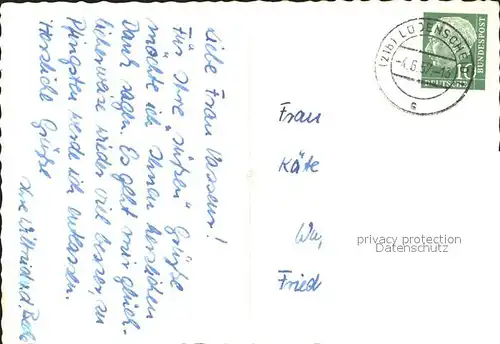 Liebe Frau Vasseur!
Für Ihre "süßen" Grüße
möchte ich Ihnen herzlichen
Dank sagen. Es geht mir glück-
licherweise wieder viel besser, zu
Pfingsten werde ich entlassen.
Herzliche Grüße
Ihre
Frau
Käte
Wu,
Fried
(21b) LÜDENSCHE
-4.6.57-18
G
10
DEUTSCHE
BUNDESPOST
privacy protection
Datenschutz